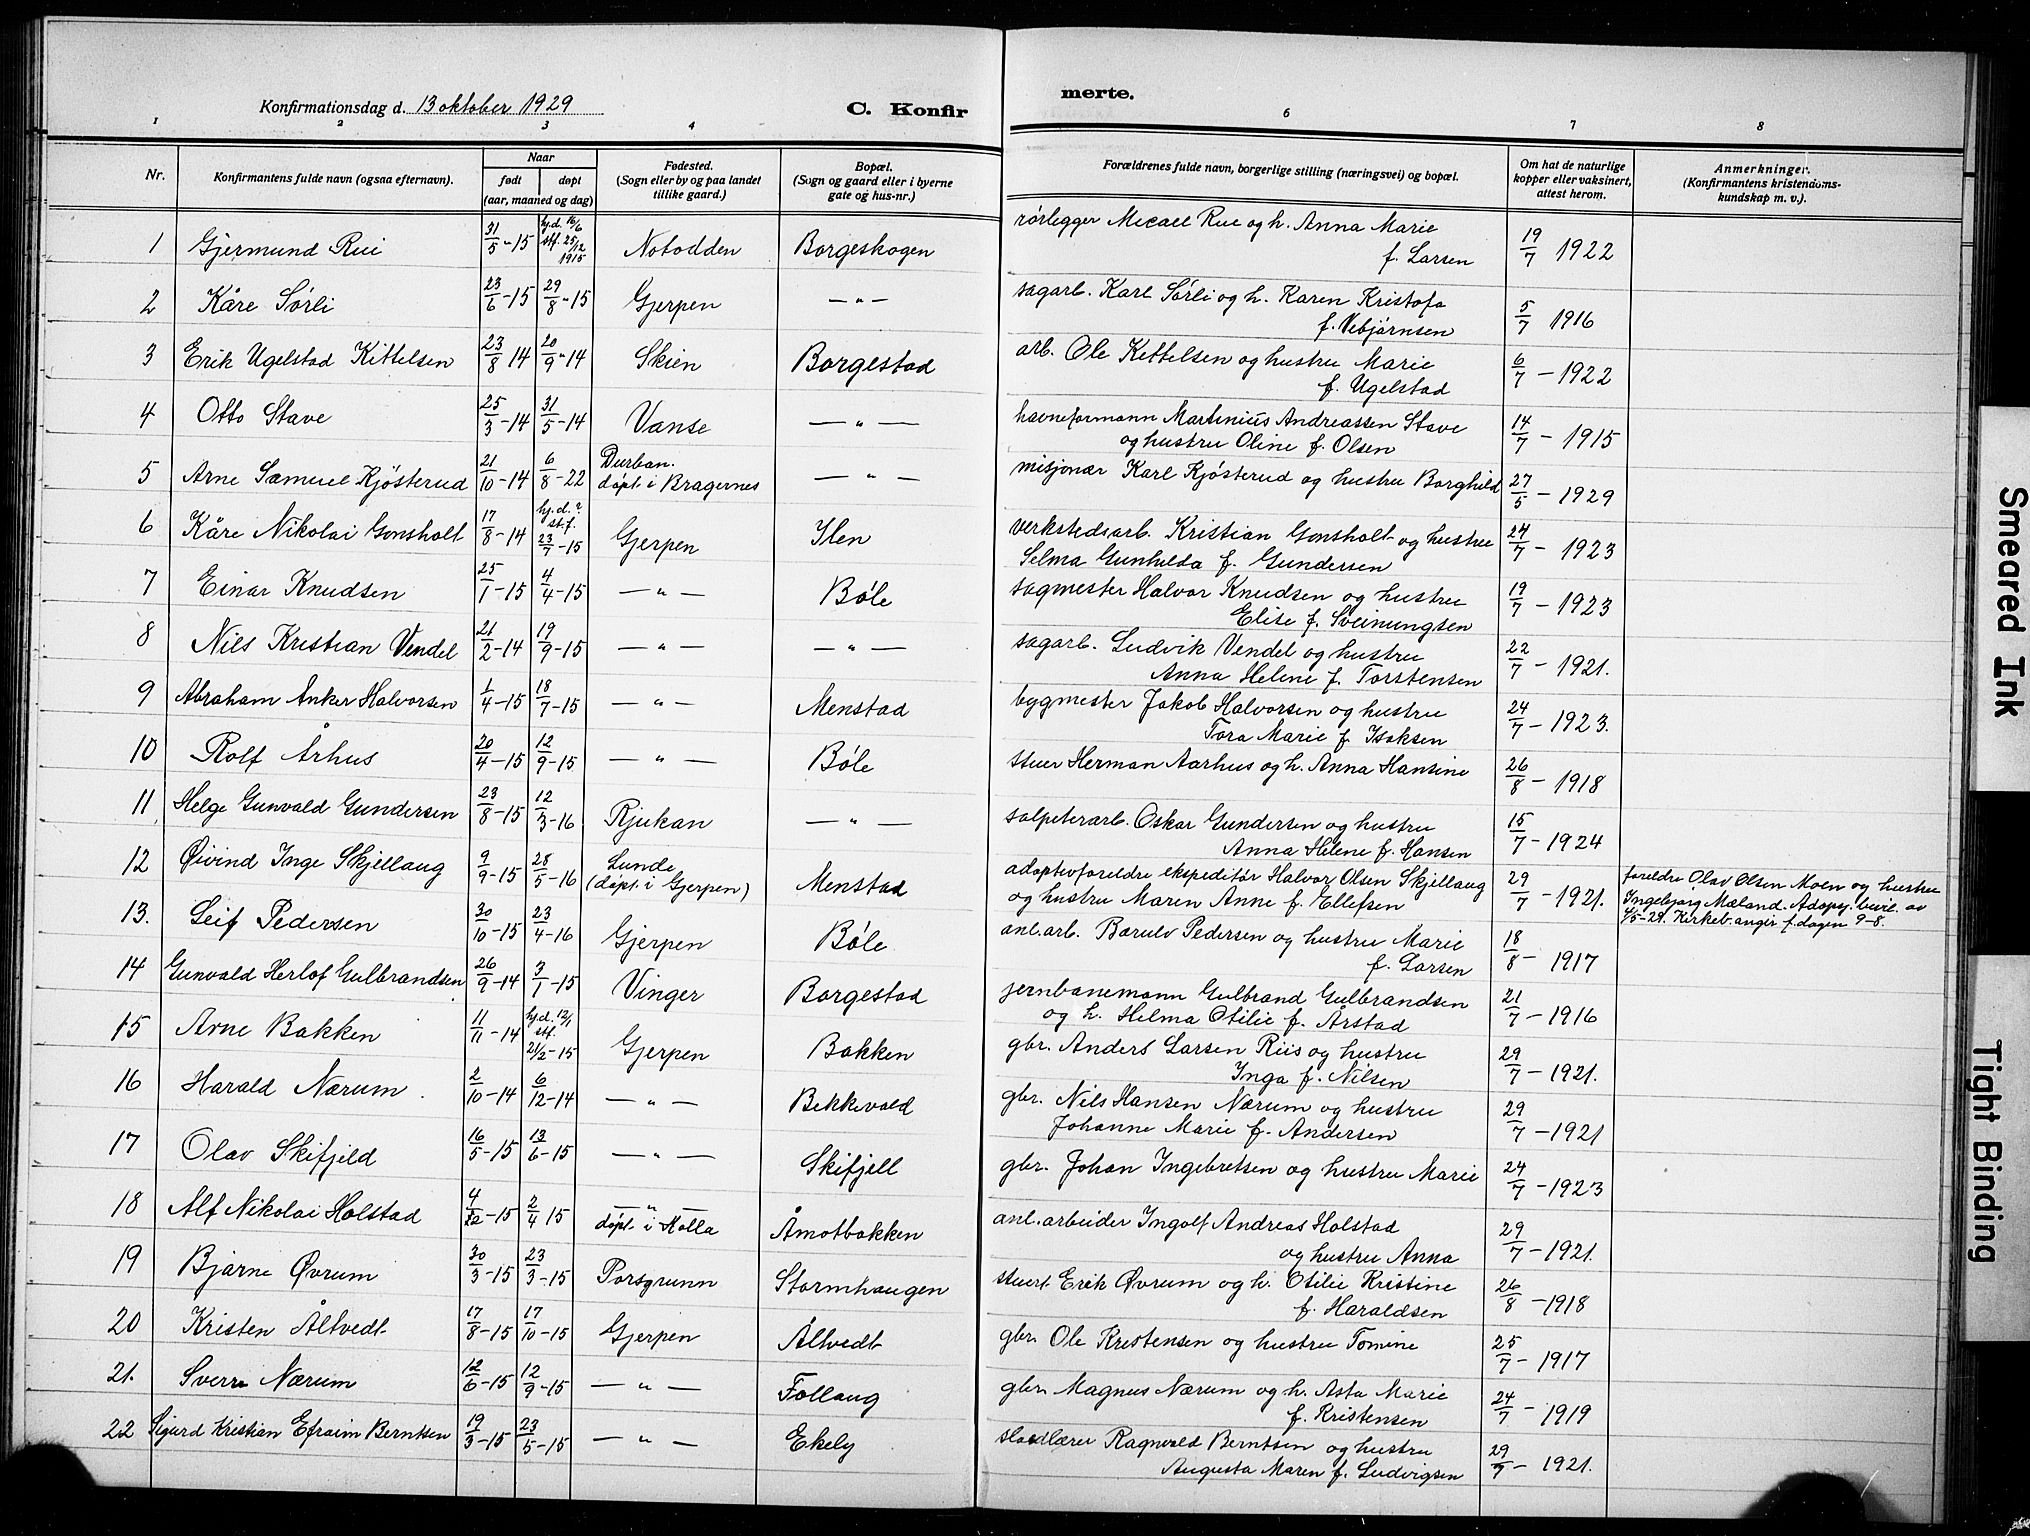 Konfirmationsdag d. 13 oktober 1929 C. Konfirmerte.
1 2 3 4 5 6 7 8
Nr. Konfirmantens fulde navn (ogsaa efternavn). Naar født døpt (aar, maaned og dag) Fødested. (Sogn eller by og paa landet tillike gaard.) Bopæl. (Sogn og gaard eller i byerne gate og hus-nr.) Forældrenes fulde navn, borgerlige stilling (næringsvei) og bopæl. Om hat de naturlige kopper eller vaksinert, attest herom. Anmerkninger. (Konfirmantens kristendomskundskap m. v.).
1 Gjermund Rui 31/5-15 hj.d. 16/6 stf. 25/12 1915 Notodden Borgeskogen rørlegger Micael Rue og h. Anna Marie f. Larsen 19/7 1922
2 Kåre Sørli 23/6-15 29/8-15 Gjerpen — " — sagarb. Karl Sørli og h. Karen Kristofa f. Vebjørnsen 5/7 1916
3 Erik Ugelstad Kittelsen 23/8 14 20/9-14 Skien Borgestad arb. Ole Kittelsen og hustru Marie f. Ugelstad 6/7-1922
4 Otto Stave 25/3-14 31/5-14 Vanse — " — havneformann Martinius Andreassen Stave og hustru Oline f. Olsen 14/7-1915
5 Arne Samuel Kjøsterud 21/10-14 6/8-22 Durban. døpt i Bragernes — " — misjonær Karl Kjøsterud og hustru Borghild 27/5-1929
6 Kåre Nikolai Gonsholt 17/8-14 hj.d. ? st.f. 23/7-15 Gjerpen Ilen verkstedsarb. Kristian Gonsholt og hustru Selma Gunhilda f. Gundersen 24/7-1923
7 Einar Knudsen 25/1-15 4/4-15 — " — Bøle sagmester Halvor Knudsen og hustru Elise f. Sveinungsen 19/7-1923
8 Nils Kristian Vendel 21/2-14 19/9-15 — " — — " — sagarb. Ludvik Vendel og hustru Anna Helene f. Torstensen 22/7-1921.
9 Abraham Anker Halvorsen 1/4-15 18/7-15 — " — Menstad bygmester Jakob Halvorsen og hustru Tora Marie f. Isaksen 24/7-1923.
10 Rolf Århus 20/4-15 12/9-15 — " — Bøle stuer Herman Aarhus og h. Anna Hansine 26/8-1918
11 Helge Gunvald Gundersen 23/8-15 12/3-16 Rjukan — " — salpeterarb. Oskar Gundersen og hustru Anna Helene f. Hansen 15/7-1924
12 Øivind Inge Skjellaug 9/9-15 28/5-16 Lunde (døpt i Gjerpen) Menstad adoptivforeldre ekspeditør Halvor Olsen Skjellaug og hustru Maren Anne f. Ellefsen 29/7-1921. foreldre Olav Olsen Moen og hustru Ingebjørg Mæland. Adopj. bevil. av 4/5-29. Kirkeb. angir f. dagen 9-8.
13. Leif Pedersen 30/10-15 23/4-16 Gjerpen Bøle anl. arb. Barulv Pedersen og hustru Marie f. Larsen 18/8-1917
14 Gunvald Herlof Gulbrandsen 26/9-14 3/1-15 Vinger Borgestad jernbanemann Gulbrand Gulbrandsen og h. Helma Otilie f. Årstad 21/7-1916
15 Arne Bakken 11/11-14 hj.d. 12/1 stf. 21/2-15 Gjerpen Bakken gbr. Anders Larsen Riis og hustru Inga f. Nilsen 29/7-1921.
16 Harald Nærum. 2/10-14 6/12-14 — " — Bekkevold gbr. Nils Hansen Nærum og hustru Johanne Marie f. Andersen 29/7-1921
17 Olav Skifjeld 16/5-15 13/6-15 — " — Skifjell gbr. Johan Ingebretsen og hustru Marie 24/7-1923
18 Alf Nikolai Holstad 4/12-15 2/4 15 — " — døpt i Holla Åmotbakken anl. arbeider Ingolf Andreas Holstad og hustru Anna 29/7-1921.
19 Bjarne Øvrum 30/3-15 23/3-15 Porsgrunn Stormhaugen stuert Erik Øvrum og h. Otilie Kristine f. Haraldsen 26/8-1918
20 Kristen Åltvedt 17/8-15 17/10-15 Gjerpen Åltvedt gbr. Ole Kristensen og hustru Tomine 25/7-1917
21. Sverre Nærum 12/6-15 12/9-15 — " — Follaug gbr. Magnus Nærum og h. Asta Marie f. Kristensen 24/7-1919
22 Sigurd Kristian Efraim Berntsen 19/3-15 23/5-15 — " — Ekely Ragnvald Berntsen og hustru Augusta Maren f. Ludvigsen 29/7-1921.
Smeared Ink
Tight Binding